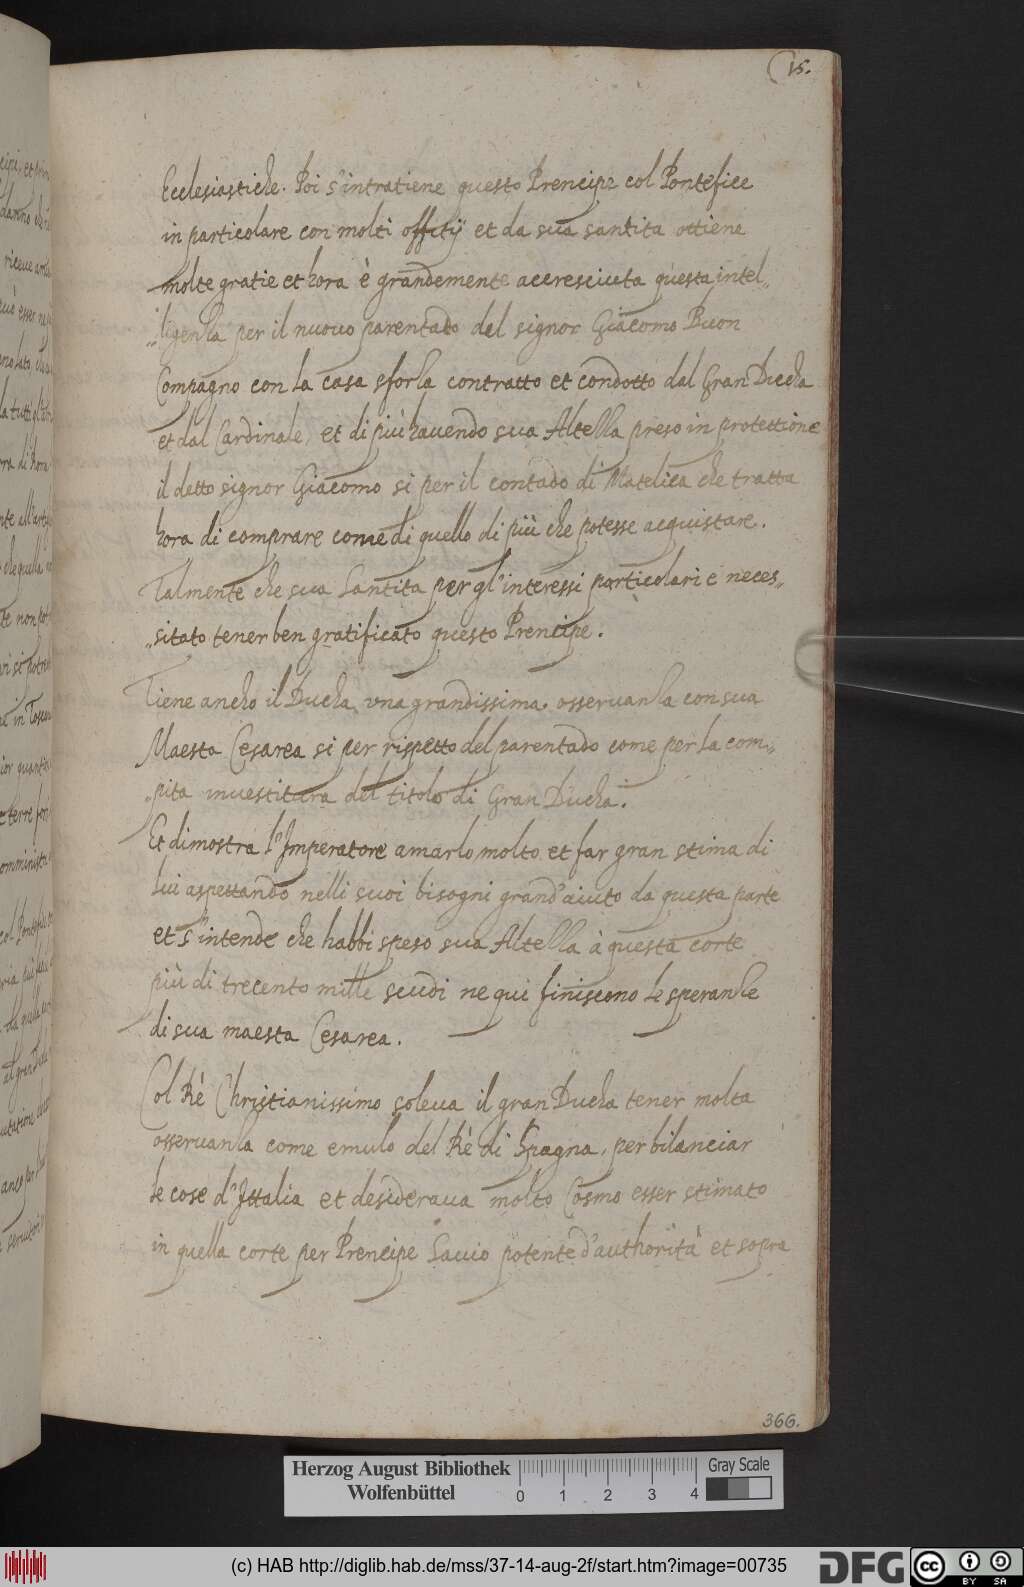 15.
Ecclesiastiche. Poi s'intratiene questo Prencipe col Pontefice
in particolare con molti offitÿ et da sua santita ottiene
molte gratie et hora è grandemente accresciuta questa intel„
„ligenza per il nuouo parentado del signor Giacomo Buon
Compagno con la casa sforza contratto et condotto dal Gran Ducha
et dal Cardinale, et di più hauendo sua Altezza preso in protettione
il detto signor Giacomo si per il contado di Matelica che tratta
hora di comprare come di quello di più che potesse acquistare.
Talmente che sua Santita per gl'interessi particolari è neces„
„sitato tener ben gratificato questo Prencipe.
Tiene ancho il Ducha una grandissima osseruanza con sua
Maesta Cesarea si per rispetto del parentado come per la com„
„pita inuestitura del titolo di Gran Ducha.
Et dimostra l'Imperatore amarlo molto et far gran stima di
lui aspettando nelli suoi bisogni grand'aiuto da questa parte
et s'intende che habbi speso sua Altezza à questa corte
più di trecento mille scudi ne qui finiscono le speranze
di sua maesta Cesarea.
Col Rè Christianissimo soleua il gran Ducha tener molta
osseruanza come emulo del Rè di Spagna, per bilanciar
le cose d'Ittalia et desideraua molto Cosmo esser stimato
in quella corte per Prencipe Sauio potente d'authorità et sopra
366.
Herzog August Bibliothek
Wolfenbüttel
0 1 2 3 4
Gray Scale
(c) HAB http://diglib.hab.de/mss/37-14-aug-2f/start.htm?image=00735
DFG
cc BY SA